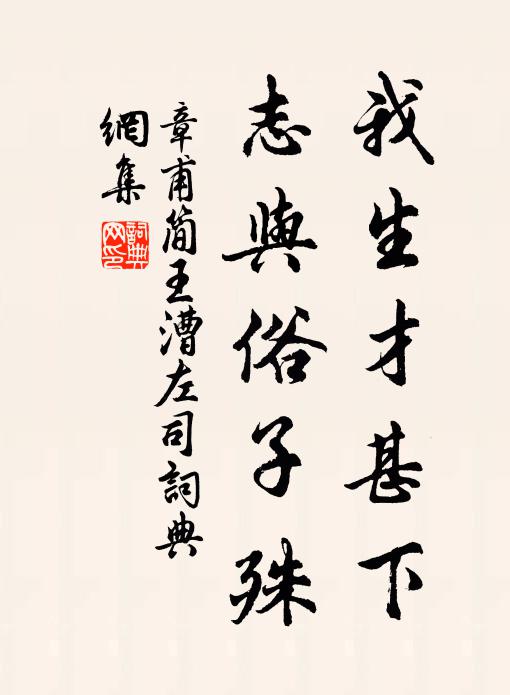 我生才甚下
志與俗子殊
章甫简王漕左司詞典
網集
詞典
网印